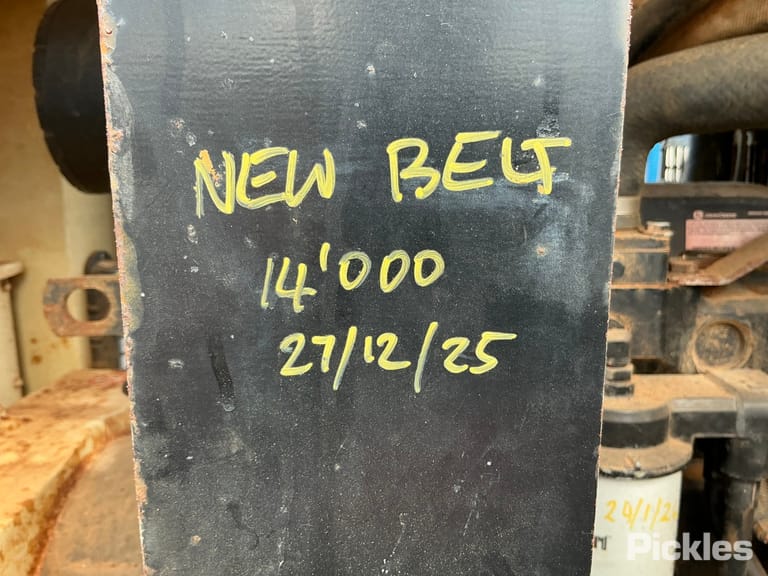 NEW BELT
14'000
27/12/25
Pickles